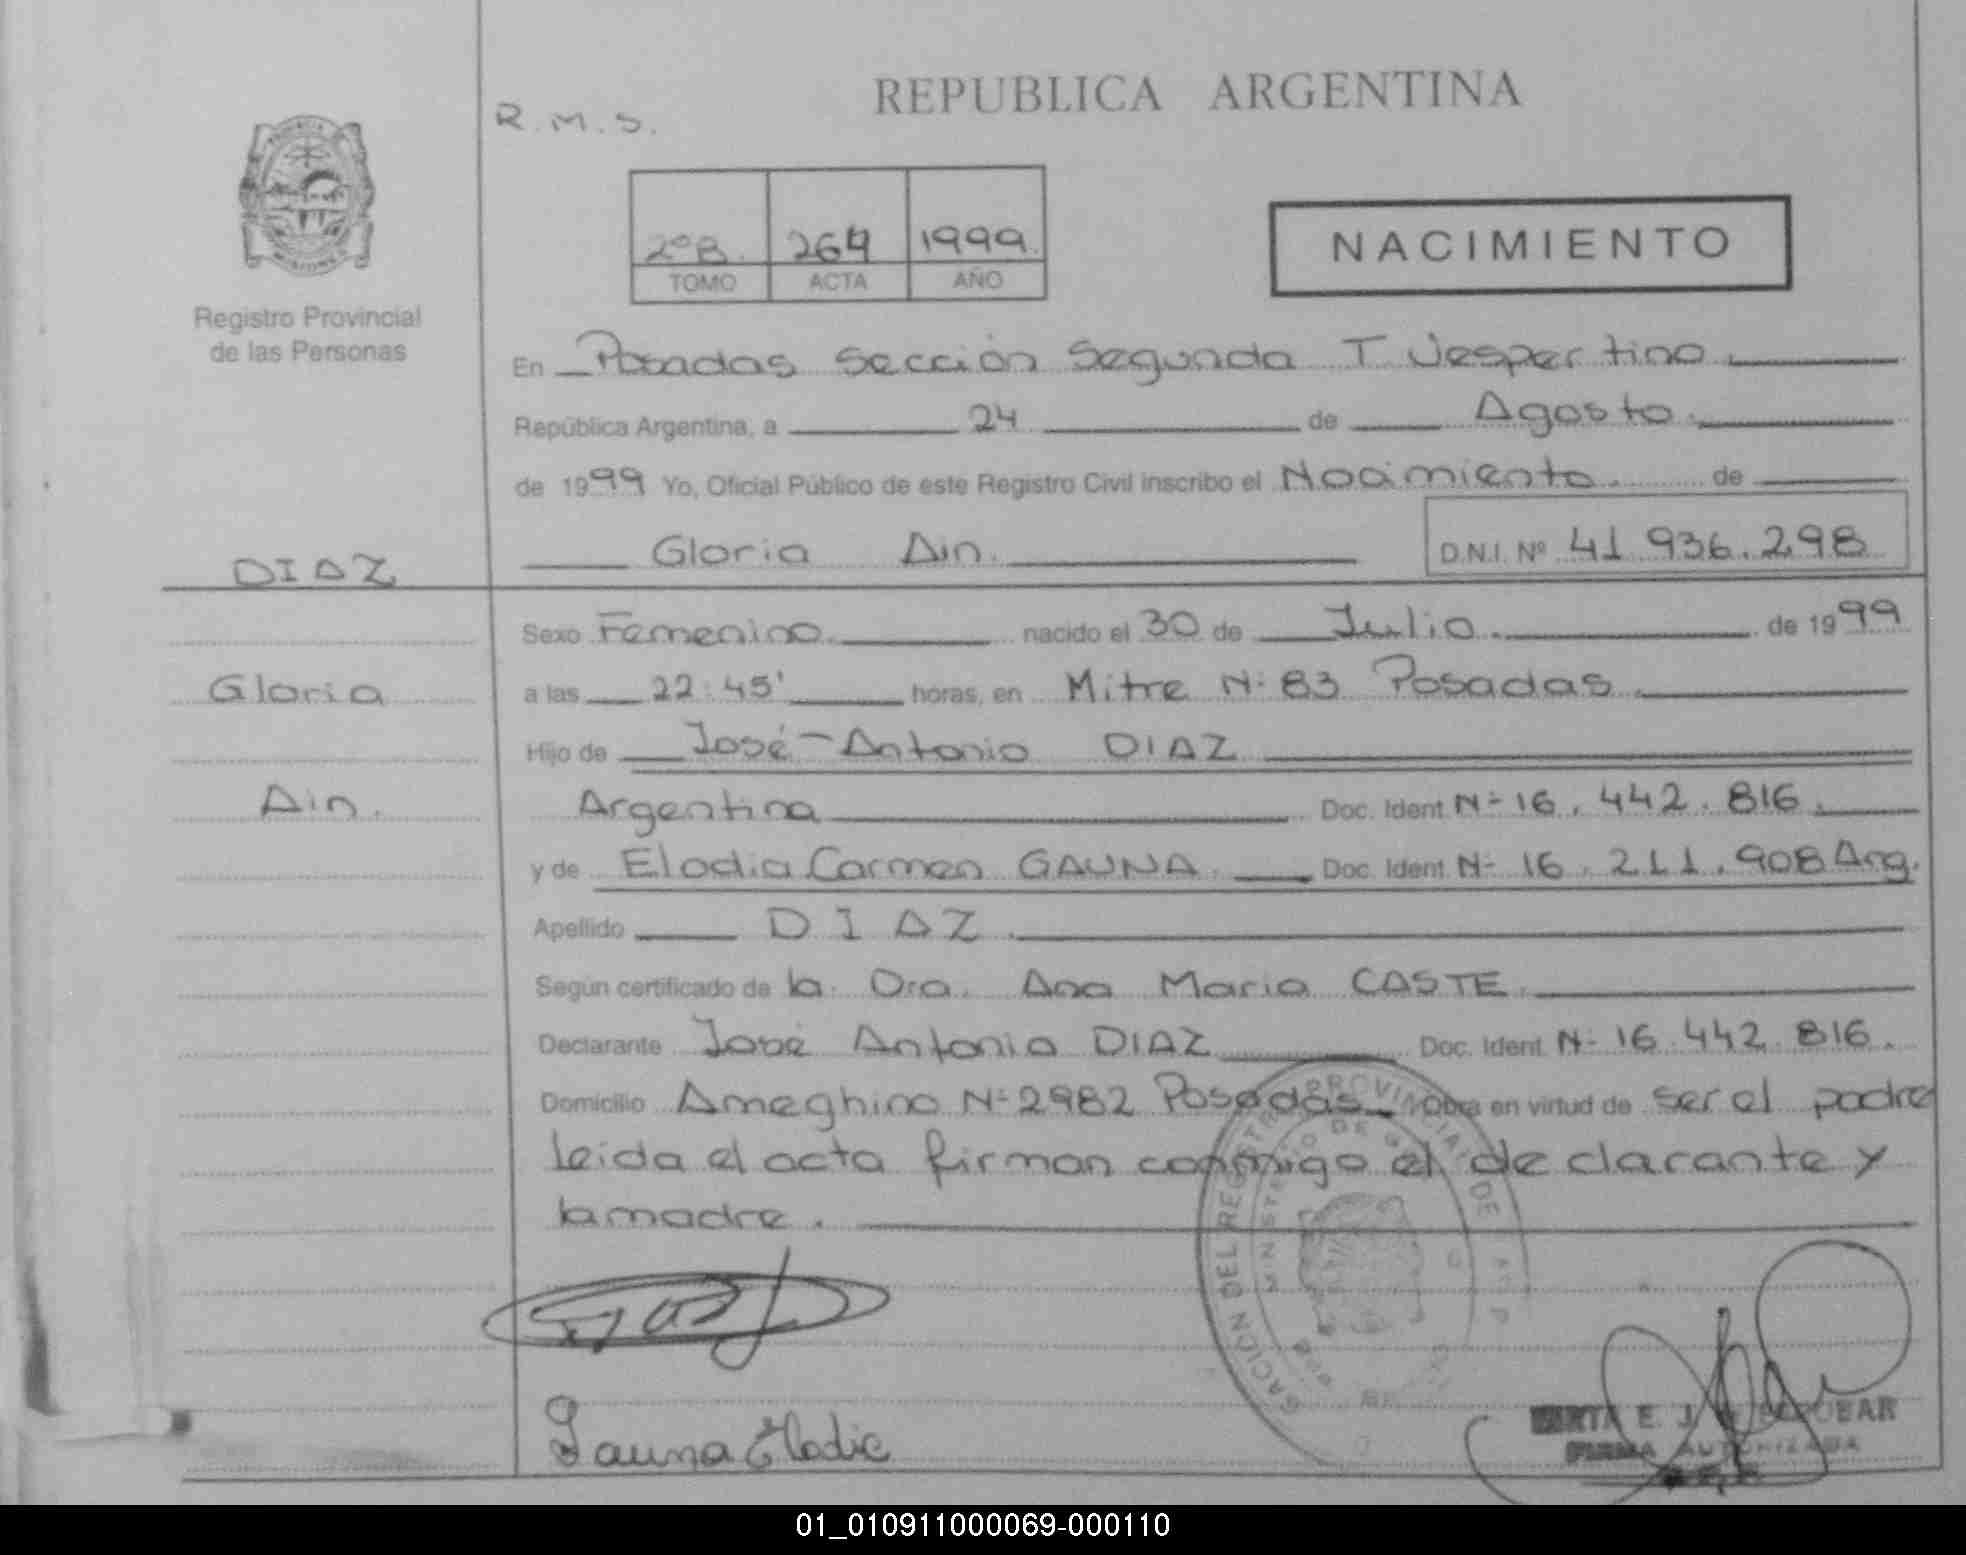 REPUBLICA ARGENTINA
R.M.S.
2º B. 264 1999.
TOMO ACTA AÑO
NACIMIENTO
Registro Provincial
de las Personas
En Posadas Sección Segunda T Vespertino.
República Argentina, a 24 de Agosto.
de 1999 Yo, Oficial Público de este Registro Civil inscribo el Nacimiento. de
DIAZ
Gloria Ain. D.N.I. Nº 41 936.298
Sexo Femenino. nacido el 30 de Julio. de 1999
Gloria
a las 22:45' horas, en Mitre Nº 83 Posadas.
Hijo de José-Antonio DIAZ
Ain.
Argentina Doc. Ident. Nº 16.442.816.
y de Elodia Carmen GAUNA. Doc. Ident. Nº 16.211.908 Arg.
Apellido DIAZ.
Según certificado de la Dra. Ana Maria CASTE.
Declarante José Antonio DIAZ Doc. Ident. Nº 16.442.816.
Domicilio Ameghino Nº 2982 Posadas. Obra en virtud de ser el padre
leida el acta firman conmigo el declarante y
la madre.
Gauna Elodia
E. J. ESCOBAR
FIRMA AUTORIZADA
01_010911000069-000110